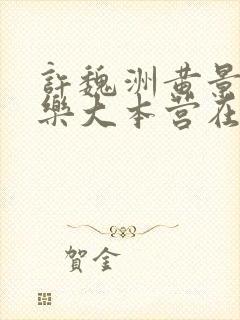 許魏洲黄景
樂大本营在
賀金